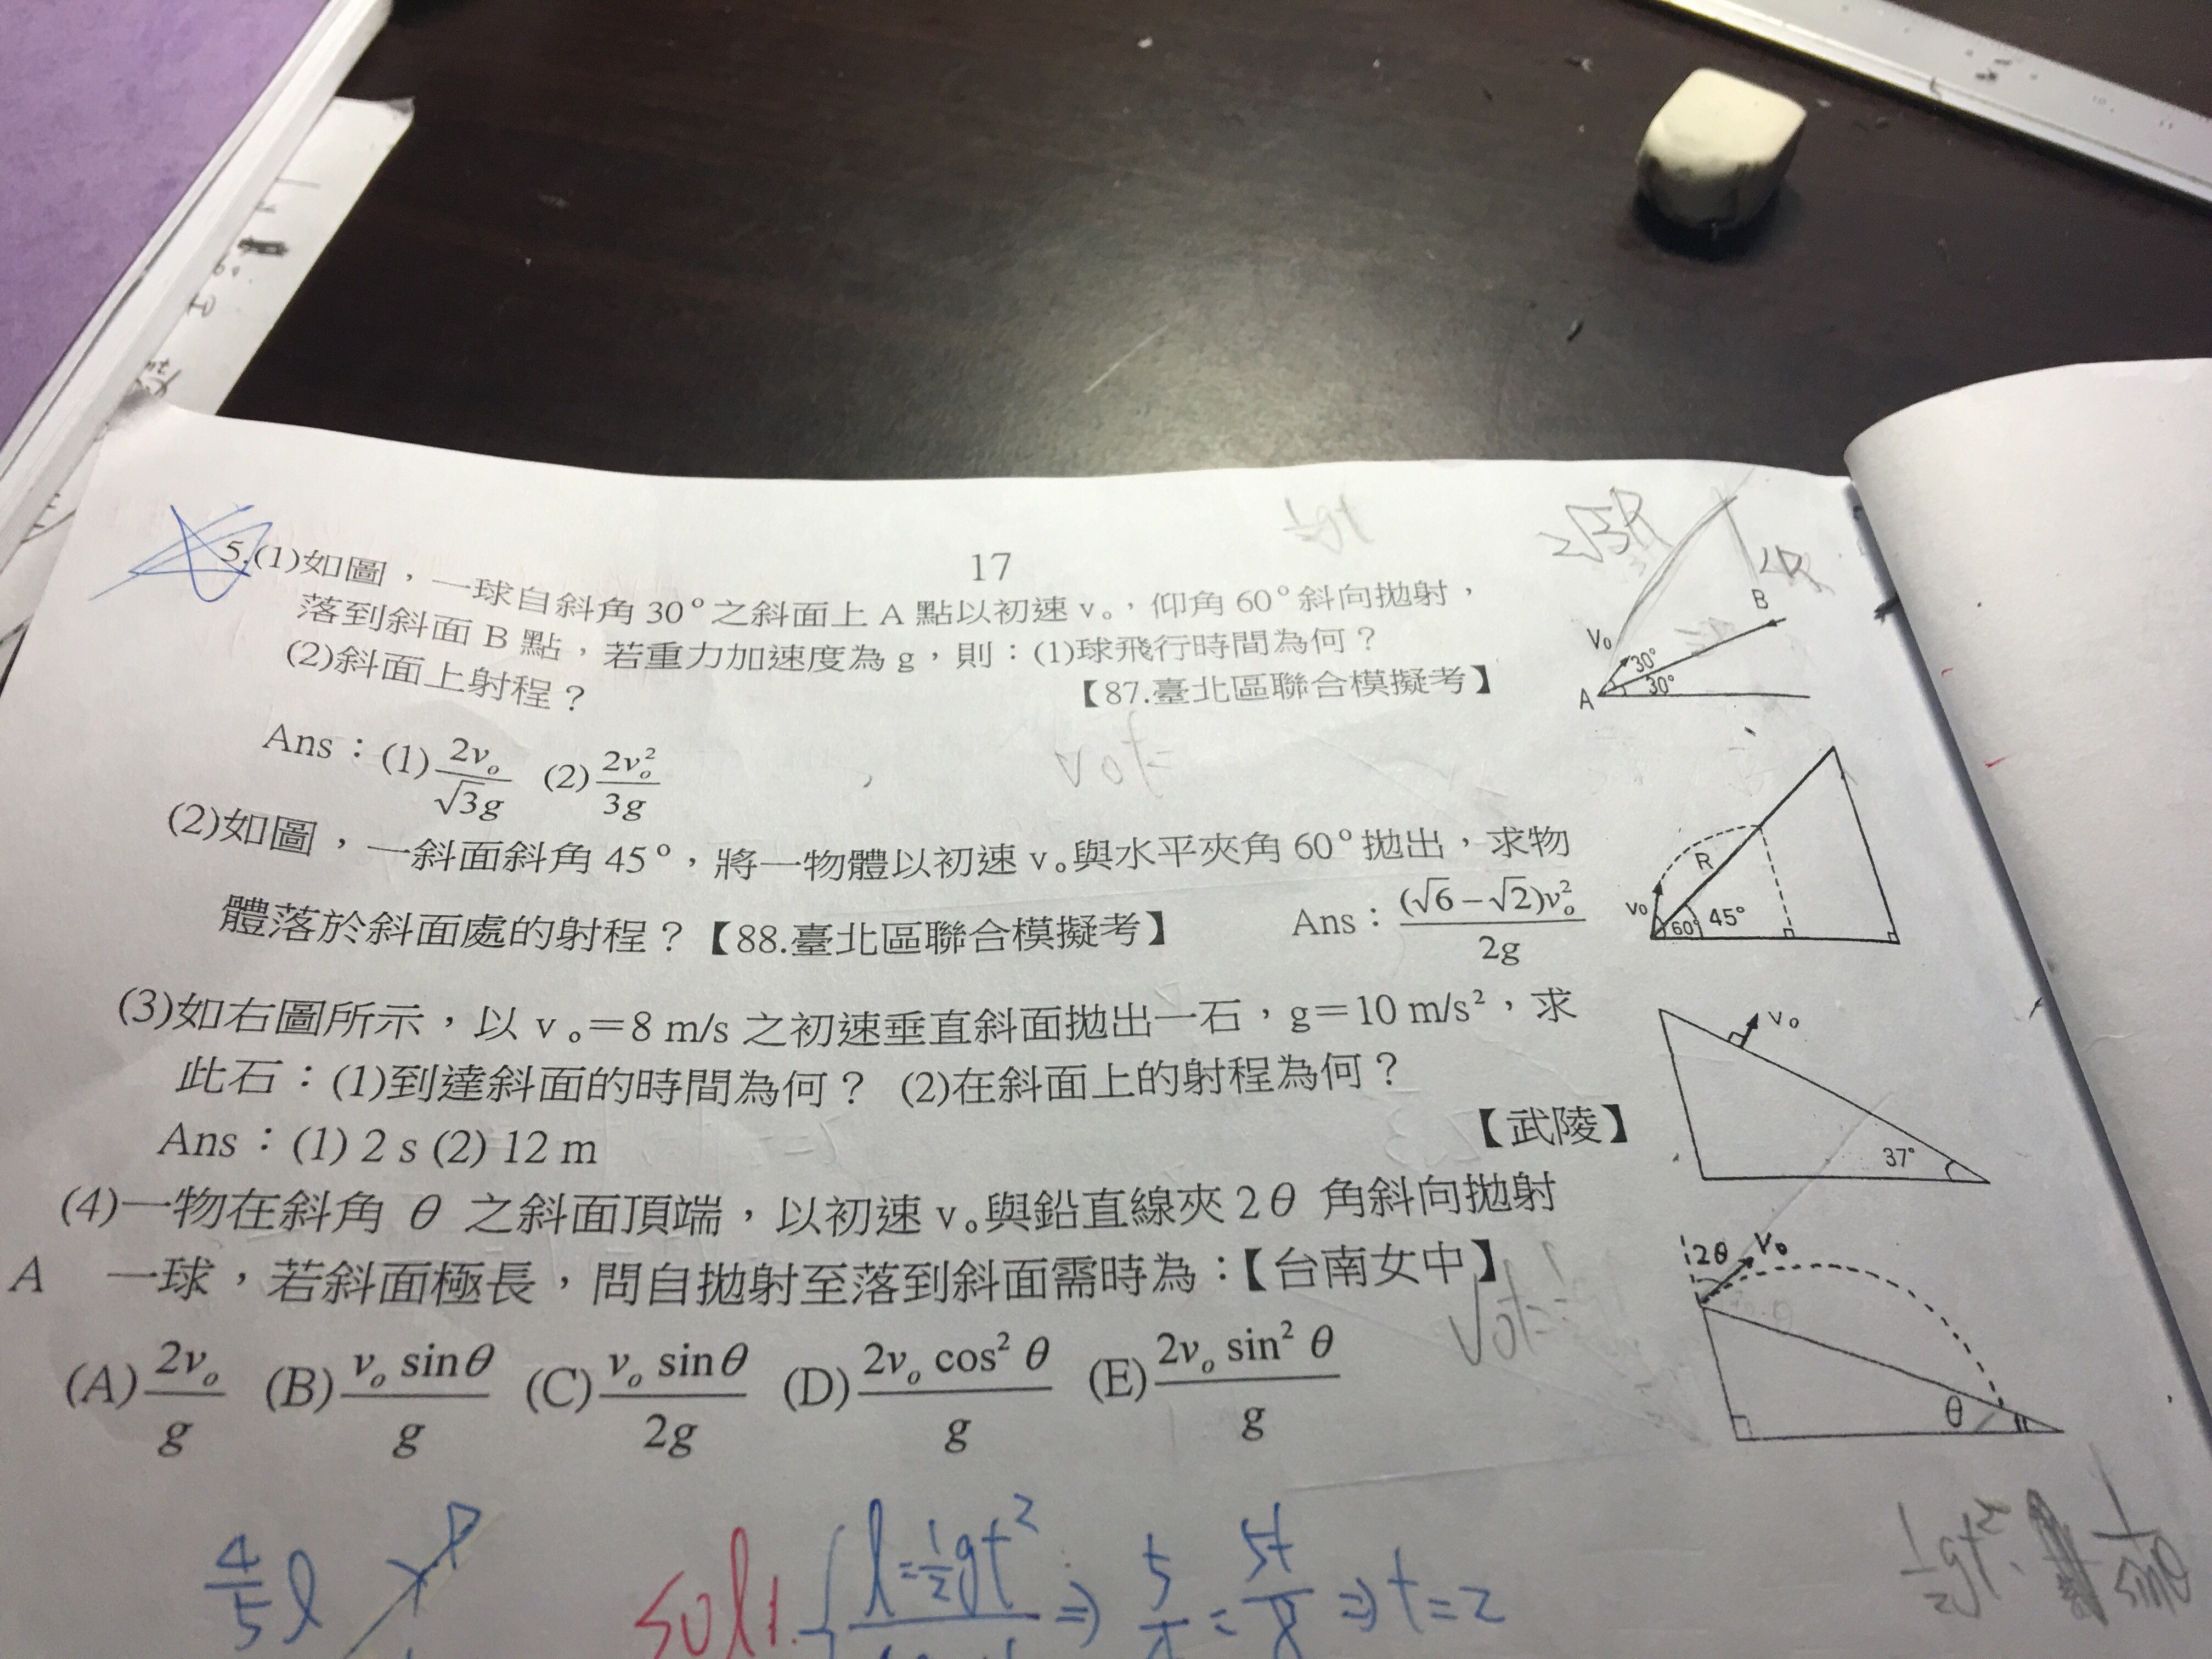 17
5.(1)如圖，一球自斜角 30°之斜面上 A 點以初速 v。，仰角 60°斜向拋射，
落到斜面 B 點，若重力加速度為 g，則：(1)球飛行時間為何？
(2)斜面上射程？ 【87.臺北區聯合模擬考】
Ans：(1) 2v₀/√3g (2) 2v₀²/3g
2√3R
2R
B
V₀
30°
30°
A
(2)如圖，一斜面斜角 45°，將一物體以初速 v。與水平夾角 60°拋出，求物
體落於斜面處的射程？【88.臺北區聯合模擬考】 Ans：(√6－√2)v₀²/2g
R
v₀
60°
45°
(3)如右圖所示，以 v。＝8 m/s 之初速垂直斜面拋出一石，g＝10 m/s²，求
此石：(1)到達斜面的時間為何？ (2)在斜面上的射程為何？
【武陵】
Ans：(1) 2 s (2) 12 m
v₀
37°
(4)一物在斜角 θ 之斜面頂端，以初速 v。與鉛直線夾 2θ 角斜向拋射
A 一球，若斜面極長，問自拋射至落到斜面需時為：【台南女中】
(A) 2v₀/g (B) v₀ sinθ/g (C) v₀ sinθ/2g (D) 2v₀ cos² θ/g (E) 2v₀ sin² θ/g
2θ
V₀
θ
4/5 l
sol1. l=1/2 gt² ⇒ 5/4 = 5t/8 ⇒ t=2
1/2 gt²· 1/sinθ